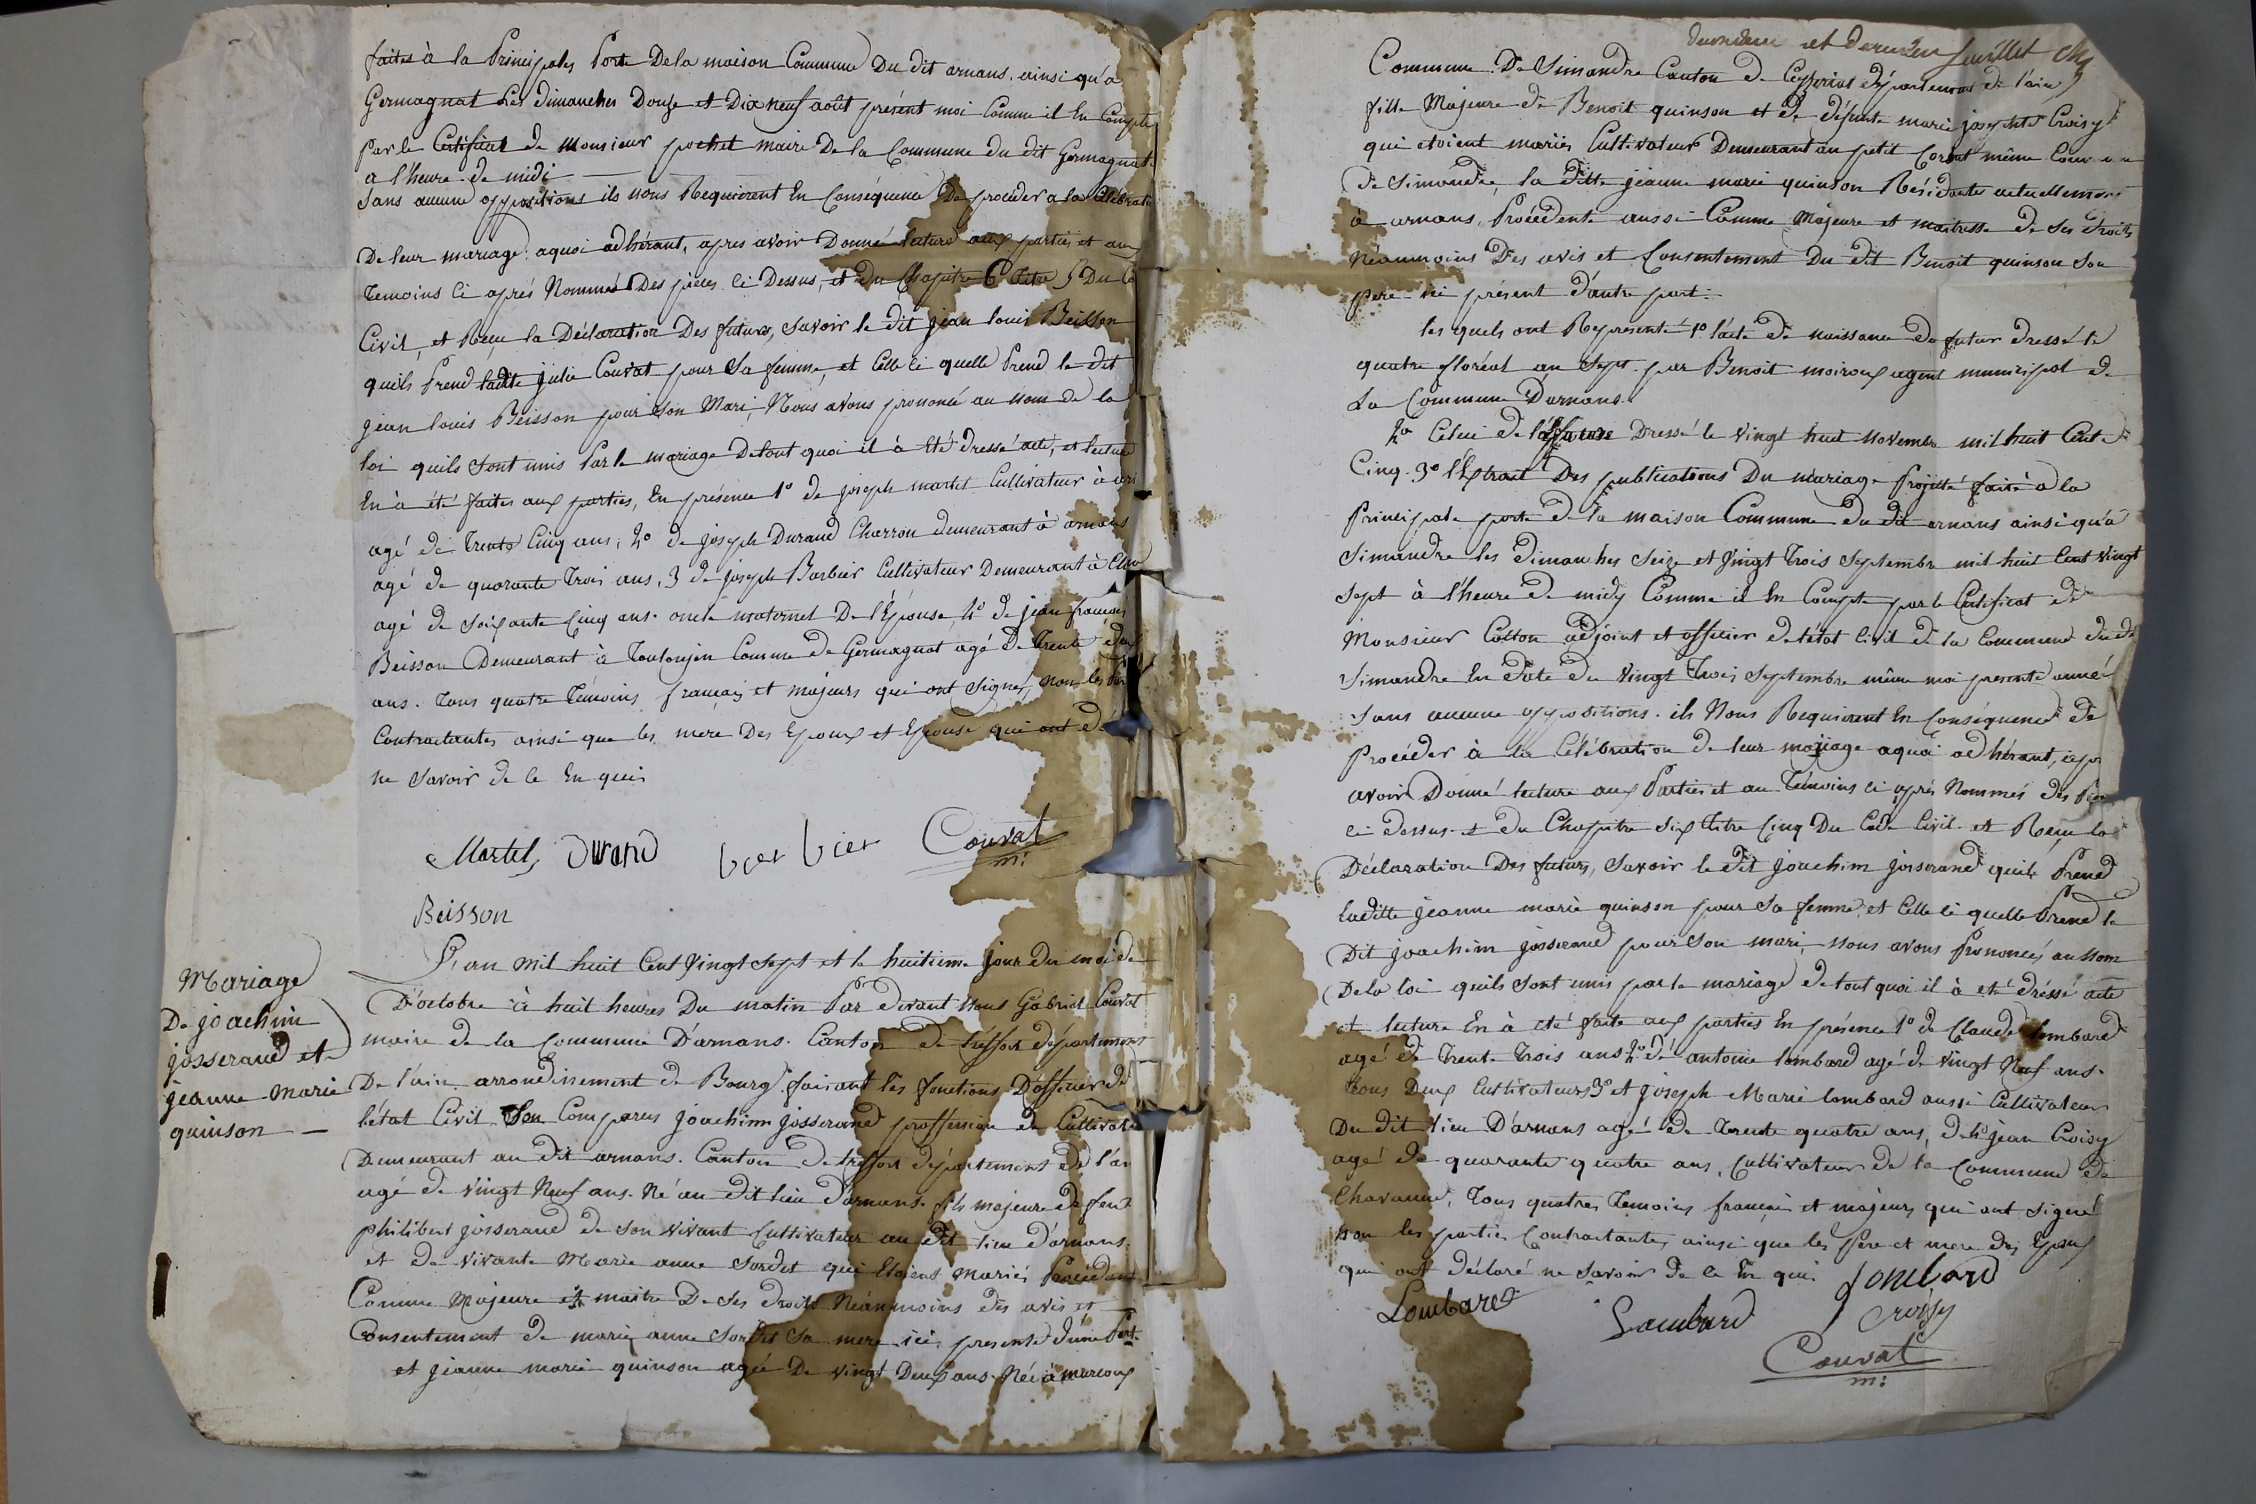 faites à la Principales Porte De la maison Commune Du dit arnans. ainsi qu'a
Germagnat Les dimanches Douze et Dix neuf août présent moi Comme il En Compte
Par le Certificat de Monsieur pochet maire De la Commune du dit Germagnat
a l'heure de midi
Sans aucune oppositions ils nous Requierent En Conséquence De proceder a la Célébrati
De leur mariage. aquoi adhérant, apres avoir Donné lecture aux parties et aux
Temoins Ci aprés Nommés Des pièces Ci Dessus, et du Chapitre 6 Titre 5 Du Co
Civil, et Reçu la Déclaration Des futurs, Savoir le dit jean louis Beisson
quils Prend ladite julie Couvat pour Sa femme, et Celle Ci quelle Prend le dit
jean louis Beisson pour Son Mari, Nous avons prononcé au nom de la
loi quils Sont unis Par le mariage De tout quoi il à été dressé acte, et lecture
En à été faites aux parties, En présence 1° de joseph martel Cultivateur à arn
agé de Trente Cinq ans, 2° de joseph Durand Charron demeurant à arnans
agé de quarante Trois ans, 3 de joseph Barbier Cultivateur Demeurant à Cha
agé de Soixante Cinq ans. oncle maternel De l'Épouse 4° de jean françois
Beisson Demeurant à Toulonjon Comune de Germagnat agé De Trente deux
ans. Tous quatre Témoins français et majeurs qui ont Signé, non les Par
Contractantes ainsi que les mere Des Epoux et Epouse qui ont dé
ne Savoir de Ce En quis
Martel, Durand barbier Couvat
m:
Beisson
Mariage
De joachim
josserand et
jeanne marie
quinson
L'an mil huit Cent Vingt Sept et le huitieme jour du moi de
D'octobre à huit heures Du matin Par devant nous Gabriel Couvat
maire de la Commune D'arnans. Canton de tréffort département
De l'ain arrondissement de Bourg faisant les fonctions D'officier de
l'état Civil Son Comparus joachim josserand proffession de Cultivate
Demeurant au dit arnans. Canton De treffort département de l'ai
agé de Vingt Neuf ans. Né au dit lieu d'arnans. fils majeure de feu
philibert josserand de Son Vivant Cultivateur au dit lieu d'arnans.
et de Vivante Marie anne Sordet qui Etoient Mariés Procédant
Comme Majeure et maitre De Ses droits Néanmoins des avis et
Consentement de marie anne Sordet Sa mere ici presente d'une Part
et jeanne marie quinson agée De Vingt Deux ans. Née à marcoux
deuxieme et dernier feuillet
Commune De Simandre Canton de Ceyzeriat département de l'ain
fille Majeure de Benoit quinson et de défunte marie josephte Croisy
qui etoient mariés Cultivateur Demeurant au petit Corent même Commune
de Simandre, la Ditte jeanne marie quinson Résidante actuellement
à arnans, Procédente aussi Comme Majeure et maitresse de Ses Droits
Néanmoins Des avis et Consentement Du dit Benoit quinson Son
pere ici présent d'autre part.
les quels ont Représenté 1° l'acte de naissance du futur dressé le
quatre floréal an Sept par Benoit moiroux agent municipal de
La Commune D'arnans.
2° Celui de la future Dressé le Vingt huit Novembre mil huit Cent
Cinq. 3° l'Extrait Des publications Du Mariage Projetté faite à la
Principale porte de la maison Commune du dit arnans ainsi qu'a
Simandre les Dimanches Seize et Vingt Trois Septembre mil huit Cent Vingt
Sept à l'heure de midy Comme il En Compte par le Certificat de
Monsieur Cotton adjoint et officier de l'état Civil de la Commune du dit
Simandre En date du Vingt Trois Septembre même moi presente année
Sans aucune oppositions. ils Nous Requierent En Conséquence de
Procéder à la Célébration de leur mariage aquoi adhérant, apr
avoir Donné lecture aux Parties et au Témoins Ci après Nommés des
Ci dessus et du Chapitre Six Titre Cinq Du Code Civil. et Reçu la
Déclaration Des futurs, Savoir le dit joachim josserand quils Prend
laditte jeanne marie quinson pour Sa femme, et Celle Ci quelle Prend le
Dit joachim josserand pour Son mari, nous avons Prononcés au Nom
De la loi quils Sont unis par le mariage de tout quoi il à été dréssé acte
et lecture En à été faite aux parties En présence 1° de Claude lombard
agé de Trente Trois ans 2° de antoine lombard agé de Vingt Neuf ans.
tous Deux Cultivateurs 3° et joseph Marie lombard aussi Cultivateur
Du dit lieu D'arnans agé de Trente quatre ans, de 4° jean Croisy
agé de quarante quatre ans, Cultivateur de la Commune de
Chavanne, Tous quatres Temoins français et majeurs qui ont Signé
non les parties Contractantes ainsi que les Pere et mere des Epoux
qui ont déclaré ne Savoir de Ce En quis
Lombard Lombard Lombard
croisy
Couvat
m: